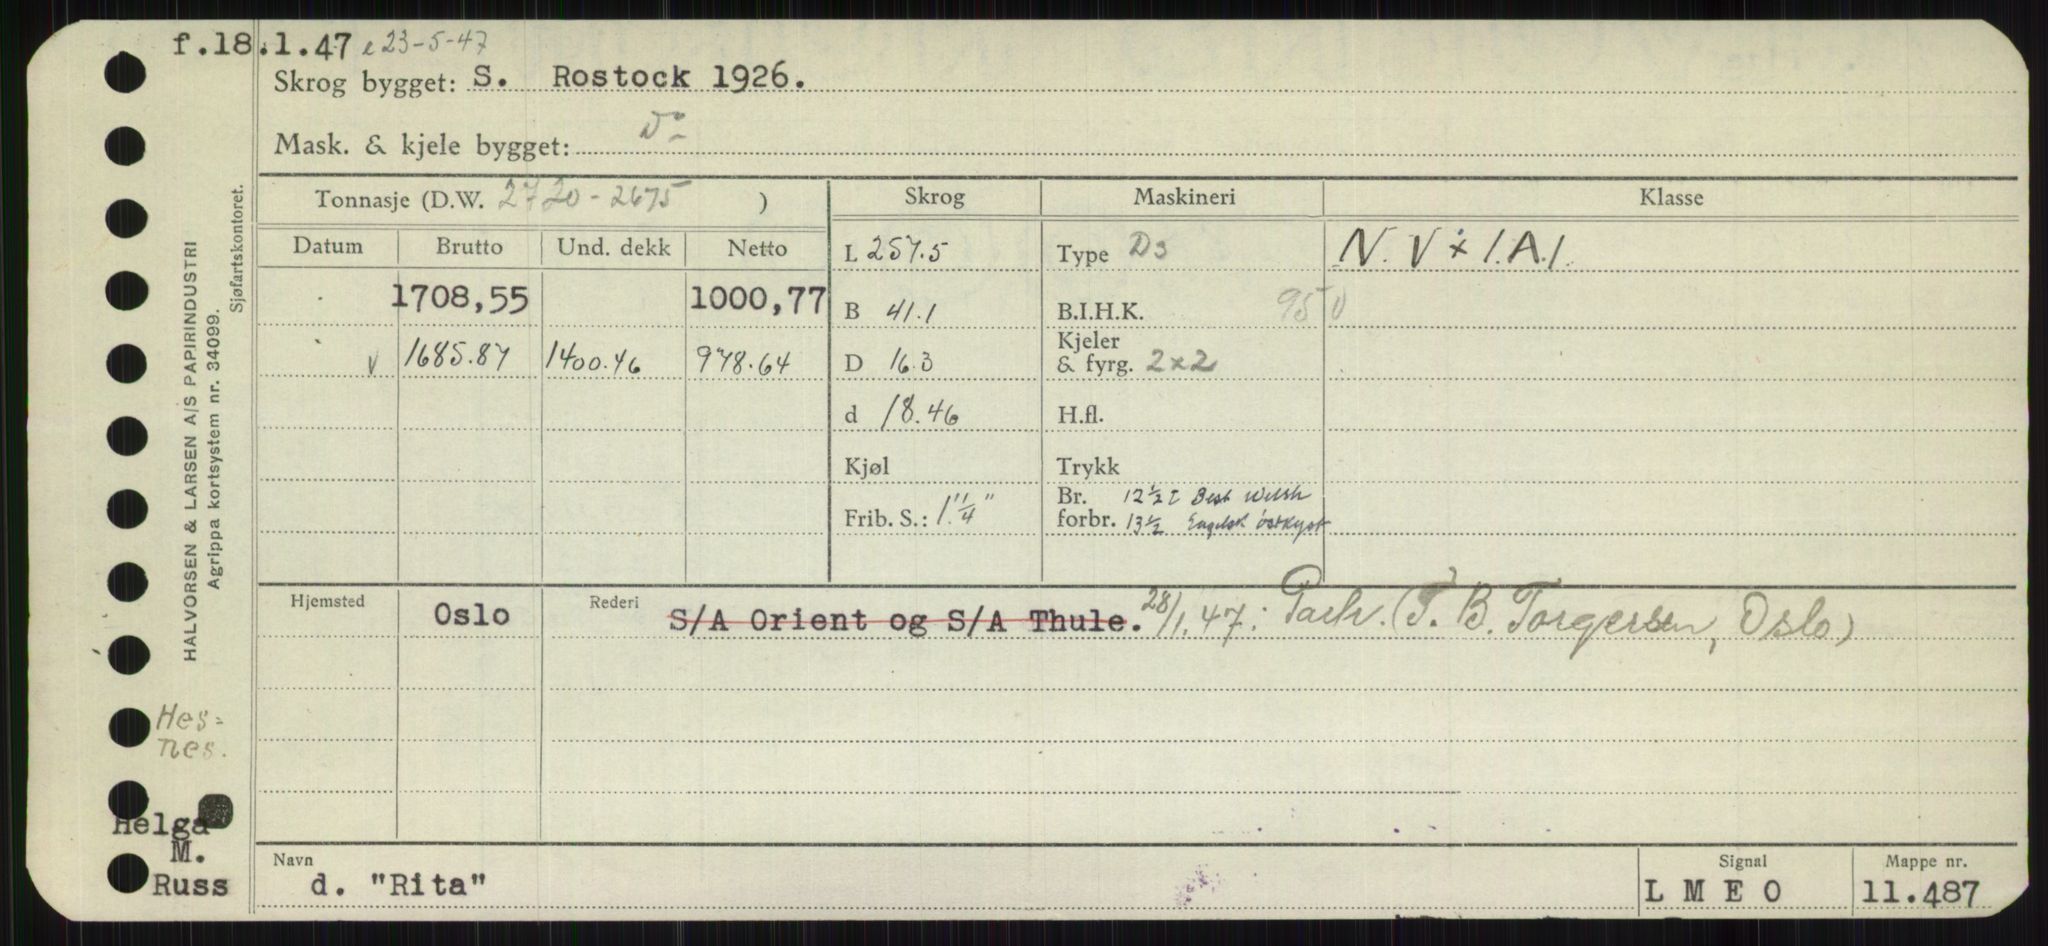 f.18.1.47 e 23-5-47
Skrog bygget: S. Rostock 1926.
Mask. & kjele bygget: Do
Tonnasje (D.W. 2720 - 2675 )
Skrog
Maskineri
Klasse
Datum Brutto Und. dekk Netto
L 257.5
Type D3
N.V + 1.A.1.
1708,55 1000,77
B 41.1
B.I.H.K. 950
v 1685.87 1400.46 978.64
D 16.3
Kjeler
& fyrg. 2x2
d 18.46
H.fl.
Kjøl
Trykk
Frib. S.: 1' 1/4"
Br. 12 1/2 t Best Welsh
forbr. 13 1/2 Engelsk østkyst
Hjemsted Oslo Rederi S/A Orient og S/A Thule. 28/1.47: Part. (T. B. Torgersen, Oslo)
HALVORSEN & LARSEN A/S PAPIRINDUSTRI
Agrippa kortsystem nr. 34099.
Sjøfartskontoret.
Hes=
nes.
Helga
M.
Russ
Navn
d. "Rita"
Signal
L M E O
Mappe nr.
11.487